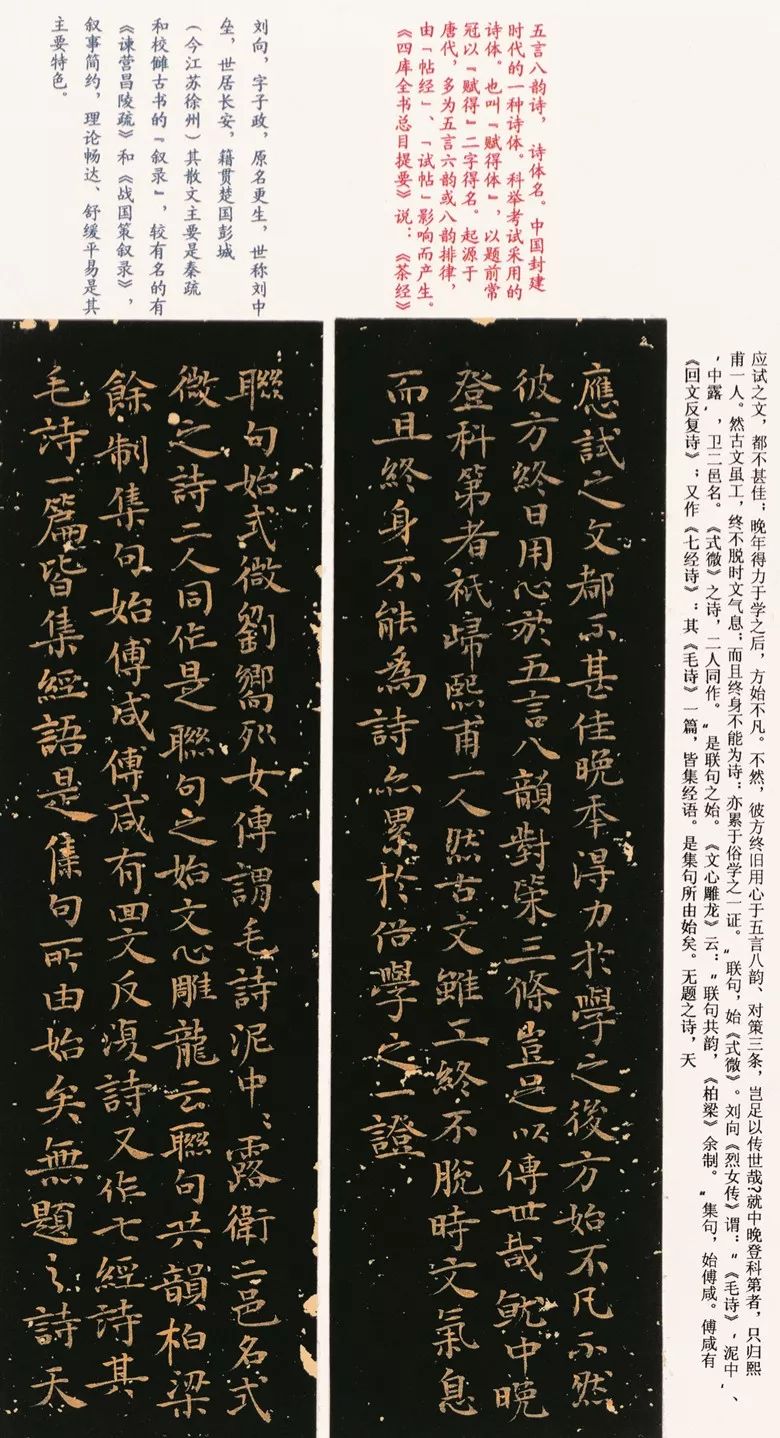 五言八韵诗，诗体名。中国封建
时代的一种诗体。科举考试采用的
诗体。也叫「赋得体」，以题前常
冠以「赋得」二字得名。起源于
唐代，多为五言六韵或八韵排律，
由「帖经」、「试帖」影响而产生。
《四库全书总目提要》说：《茶经》
刘向，字子政，原名更生，世称刘中
垒，世居长安，籍贯楚国彭城
（今江苏徐州）其散文主要是秦疏
和校雠古书的『叙录』，较有名的有
《谏营昌陵疏》和《战国策叙录》，
叙事简约，理论畅达、舒缓平易是其
主要特色。
应试之文，都不甚佳；晚年得力于学之后，方始不凡。不然，彼方终旧用心于五言八韵、对策三条，岂足以传世哉?就中晚登科第者，只归熙
甫一人。然古文虽工，终不脱时文气息；而且终身不能为诗：亦累于俗学之一证。"联句，始《式微》。刘向《烈女传》谓："《毛诗》'泥中'、
'中露'，卫二邑名。《式微》之诗，二人同作。"是联句之始。《文心雕龙》云："联句共韵，《柏梁》余制。"集句，始傅咸。傅咸有
《回文反复诗》；又作《七经诗》；其《毛诗》一篇，皆集经语。是集句所由始矣。无题之诗，天
應試之文都不甚佳晚年得力於學之後方始不凡不然
彼方終日用心於五言八韻對策三條豈足以傳世哉就中晚
登科第者祇歸熙甫一人然古文雖工終不脫時文氣息
而且終身不能為詩亦累於俗學之一證
聯句始式微劉嚮列女傳謂毛詩泥中〻露衛二邑名式
微之詩二人同作是聯句之始文心雕龍云聯句共韻柏梁
餘制集句始傅咸傅咸有回文反復詩又作七經詩其
毛詩一篇皆集經語是集句所由始矣無題之詩天